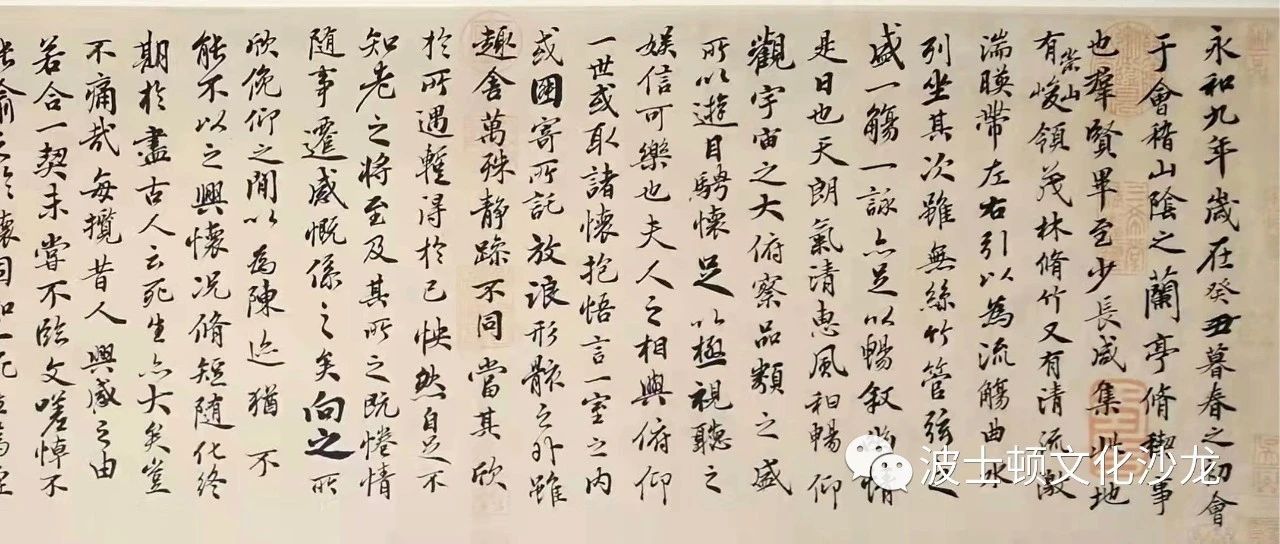 永和九年歲在癸丑暮春之初會
于會稽山陰之蘭亭脩稧事
也羣賢畢至少長咸集此地
有崇山峻領茂林脩竹又有清流激
湍暎帶左右引以為流觴曲水
列坐其次雖無絲竹管弦之
盛一觴一詠亦足以暢敘幽情
是日也天朗氣清惠風和暢仰
觀宇宙之大俯察品類之盛
所以遊目騁懷足以極視聽之
娛信可樂也夫人之相與俯仰
一世或取諸懷抱悟言一室之內
或因寄所託放浪形骸之外雖
趣舍萬殊靜躁不同當其欣
於所遇蹔得於己怏然自足不
知老之將至及其所之既惓情
隨事遷感慨係之矣向之所
欣俛仰之間以為陳迹猶不
能不以之興懷況脩短隨化終
期於盡古人云死生亦大矣豈
不痛哉每攬昔人興感之由
若合一契未嘗不臨文嗟悼不
喻之於懷固知一死
波士顿文化沙龙